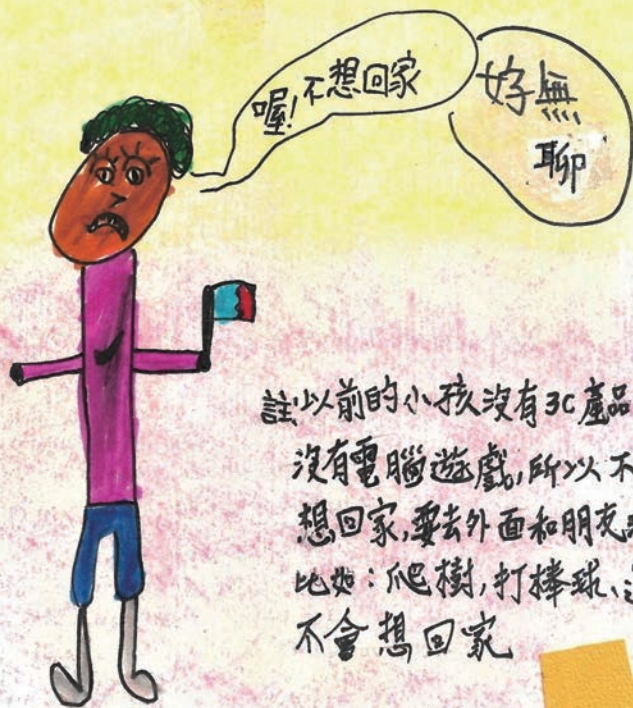 喔!不想回家
好無
聊
註:以前的小孩沒有3C產品
沒有電腦遊戲,所以不
想回家,要去外面和朋友
比如:爬樹,打棒球、
不會想回家